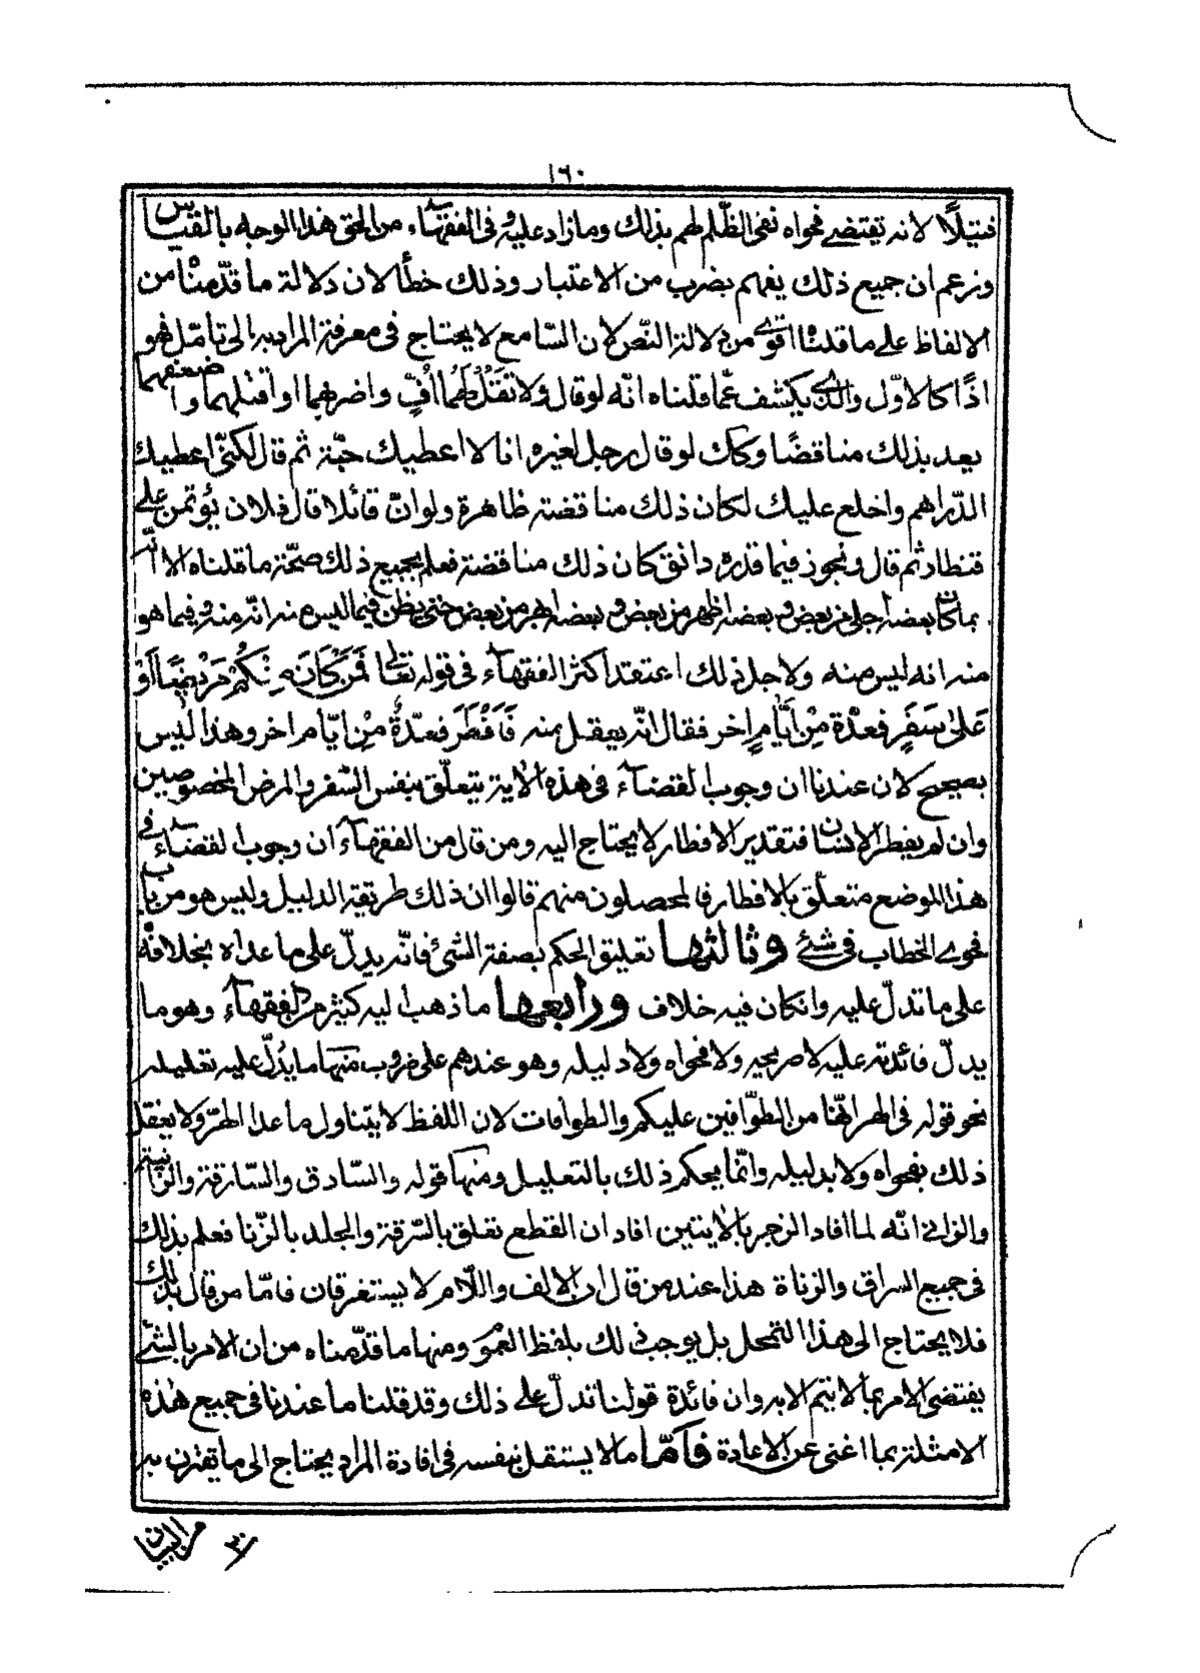 ١٦٠
فتيلًا لانه يقتضى فحواه نفى الظّلم لهم بذلك وما زاد عليه وفى الفقهاء من الحق هذا الوجه بالقياس
وزعم ان جميع ذلك يفهم بضرب من الاعتبار وذلك خطأ لان دلالة ما قدّمناه من
الالفاظ على ما قلناه اقوى من دلالة النّص لان السّامع لا يحتاج فى معرفة المراد به الى تأمّل فهو
اذًا كالاوّل والذى يكشف عمّا قلناه انّه لو قال ولا تَقُلْ لَهُما اُفٍّ واضربهما او اقتلهما واضعفهما
بعد بذلك مناقضًا وكك لو قال رجل لغيره انا لا اعطيك حبّة ثم قال لكنّى اعطيك
الدّراهم واخلع عليك لكان ذلك مناقضة ظاهرة ولو انّ قائلا قال فلان يؤتمن على
قنطار ثم قال ويخون فيما قدره دانق كان ذلك مناقضة فعلم بجميع ذلك صحّة ما قلناه الا انّه
بما كان بعضه اجلى من بعض و بعضه اظهر من بعض و بعضه ابهر من بعض حتى يظن فيما ليس منه انّه منه وفيما هو
منه انه ليس منه ولاجل ذلك اعتقد اكثر الفقهآء فى قوله تعالى فَمَنْ كَانَ مِنْكُمْ مَرِيضًا اَوْ
عَلى سَفَرٍ فعدّة مِنْ اَيّامٍ اخر فقال انّه يعقل منه فَاَفْطَرَ فعدّةٌ مِنْ ايّام اخر وهذا ليس
بصحيح لان عندنا ان وجوب القضآء فى هذه الاية يتعلّق بنفس السّفر والمرض المخصوصين
وان لم يفطر الانسان فتقدير الافطار لا يحتاج اليه ومن قال من الفقهآء ان وجوب القضاء فى
هذا الموضع متعلّق بالافطار فالمحصلون منهم قالوا ان ذلك طريقة الدليل وليس هو من باب
فحوى الخطاب فى شئ وثالثها تعليق الحكم بصفة الشئ فانّه يدلّ على ما عداه بخلافه
على ما تدلّ عليه وانكان فيه خلاف ورابعها ما ذهب اليه كثير من الفقهآء وهو ما
يدلّ فائدته عليه لا صريحه ولا فحواه ولا دليله وهو عندهم على ضروب منها ما يدُلّ عليه تعليله
نحو قوله فى الهر انّها من الطوّافين عليكم والطوافات لان اللفظ لا يتناول ما عدا الهرّ ولا يعقل
ذلك بفحواه ولا بدليله وانّما يحكم ذلك بالتعليل ومنها قوله والسّارق والسّارقة والزّانية
والزانى انّه لما افاد الزجر بالايتين افاد ان القطع تعلق بالسّرقة والجلد بالزّنا فعلم بذلك
فى جميع السراق والزناة هذا عند من قال ان الالف واللّام لا يستغرقان فامّا من قال بذلك
فلا يحتاج الى هذا التمحل بل يوجب ذلك بلفظ العموم ومنها ما قدّمناه من ان الامر بالشئ
يقتضى الامر بما لا يتم الا به وان فائدة قولنا تدلّ على ذلك وقد قلنا ما عندنا فى جميع هذه
الامثلة بما اغنى عن الاعادة فامّا ما لا يستقل بنفسه فى افادة المراد يحتاج الى ما يقترن به
من البيان